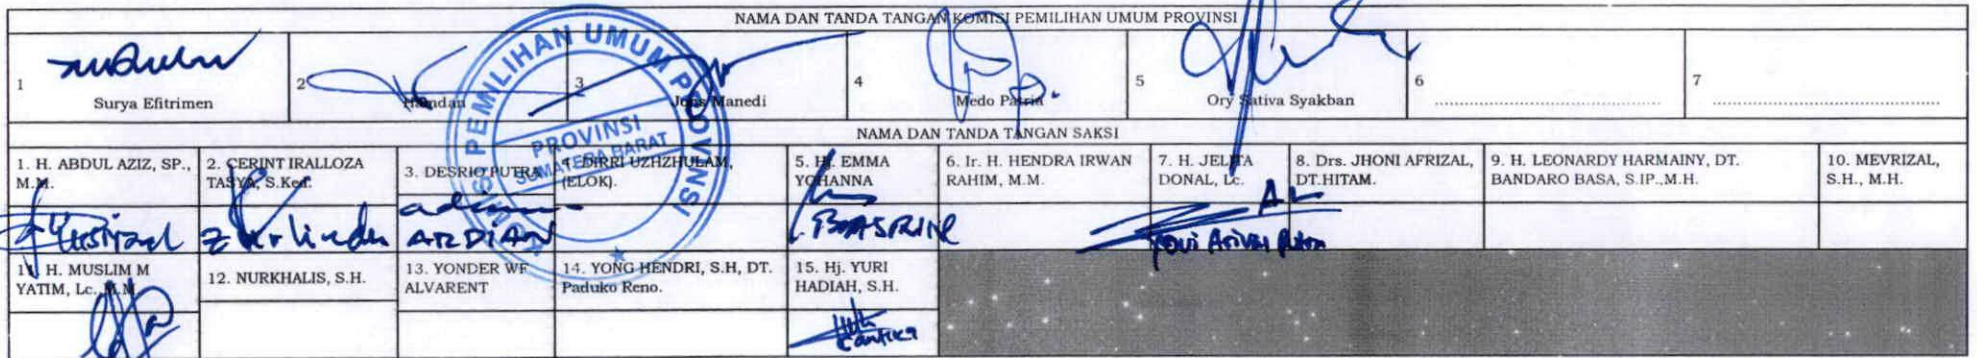 NAMA DAN TANDA TANGAN KOMISI PEMILIHAN UMUM PROVINSI
1 2 3 4 5 6 7
Surya Efitrimen Hamdan Jons Manedi Medo Patria Ory Sativa Syakban
KOMISI PEMILIHAN UMUM PROVINSI
PROVINSI
SUMATERA BARAT
NAMA DAN TANDA TANGAN SAKSI
1. H. ABDUL AZIZ, SP., M.M.
2. CERINT IRALLOZA TASYA, S.Ked.
3. DESRIO PUTRA
4. DIRRI UZHZHULAM, (ELOK).
5. Hj. EMMA YOHANNA
6. Ir. H. HENDRA IRWAN RAHIM, M.M.
7. H. JELITA DONAL, Lc.
8. Drs. JHONI AFRIZAL, DT.HITAM.
9. H. LEONARDY HARMAINY, DT. BANDARO BASA, S.IP.,M.H.
10. MEVRIZAL, S.H., M.H.
ARDIAN
11. H. MUSLIM M YATIM, Lc. M.M
12. NURKHALIS, S.H.
13. YONDER WF ALVARENT
14. YONG HENDRI, S.H, DT. Paduko Reno.
15. Hj. YURI HADIAH, S.H.